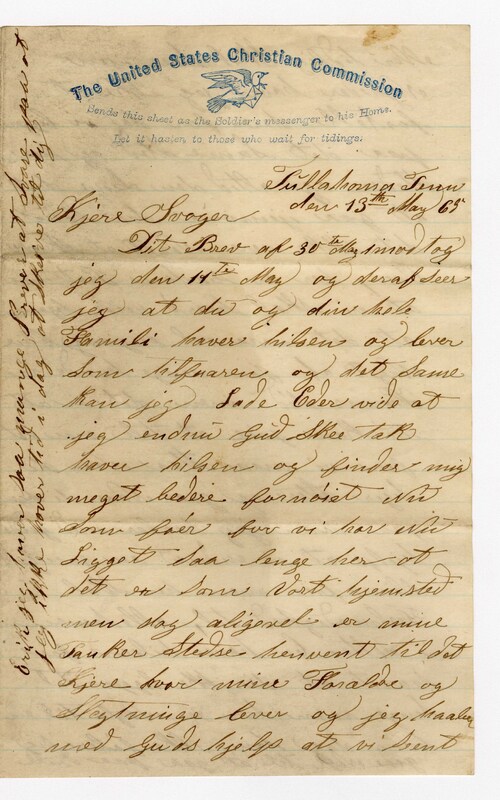 The United States Christian Commission
Sends this sheet as the Soldier's messenger to his Home.
Let it hasten to those who wait for tidings.
Tullahoma Tenn
den 13th May 65
Kjere Svoger
Dit Brev af 30te May imodtog
jeg den 11te May og deraf seer
jeg at du og din hele
Famili haver hilsen og lever
som tilfoaren og det Same
kan jeg Lade Eder vide at
jeg endnu Gud Skee tak
haver hilsen og finder mig
meget bedere fornöiet Nu
som foér for vi har Nu
Ligget saa lenge her at
det er som Vort hjemsted
men dog aligevel er mine
Tanker Stedse henvent til det
Kjere hvor mine Foraldre og
Slegtninge lever og jeg haaber
med Guds hjelp at vi Sent
jeg haver saa mange Brever at Svare paa at
jeg ikke haver tid i dag at Skrive til dig